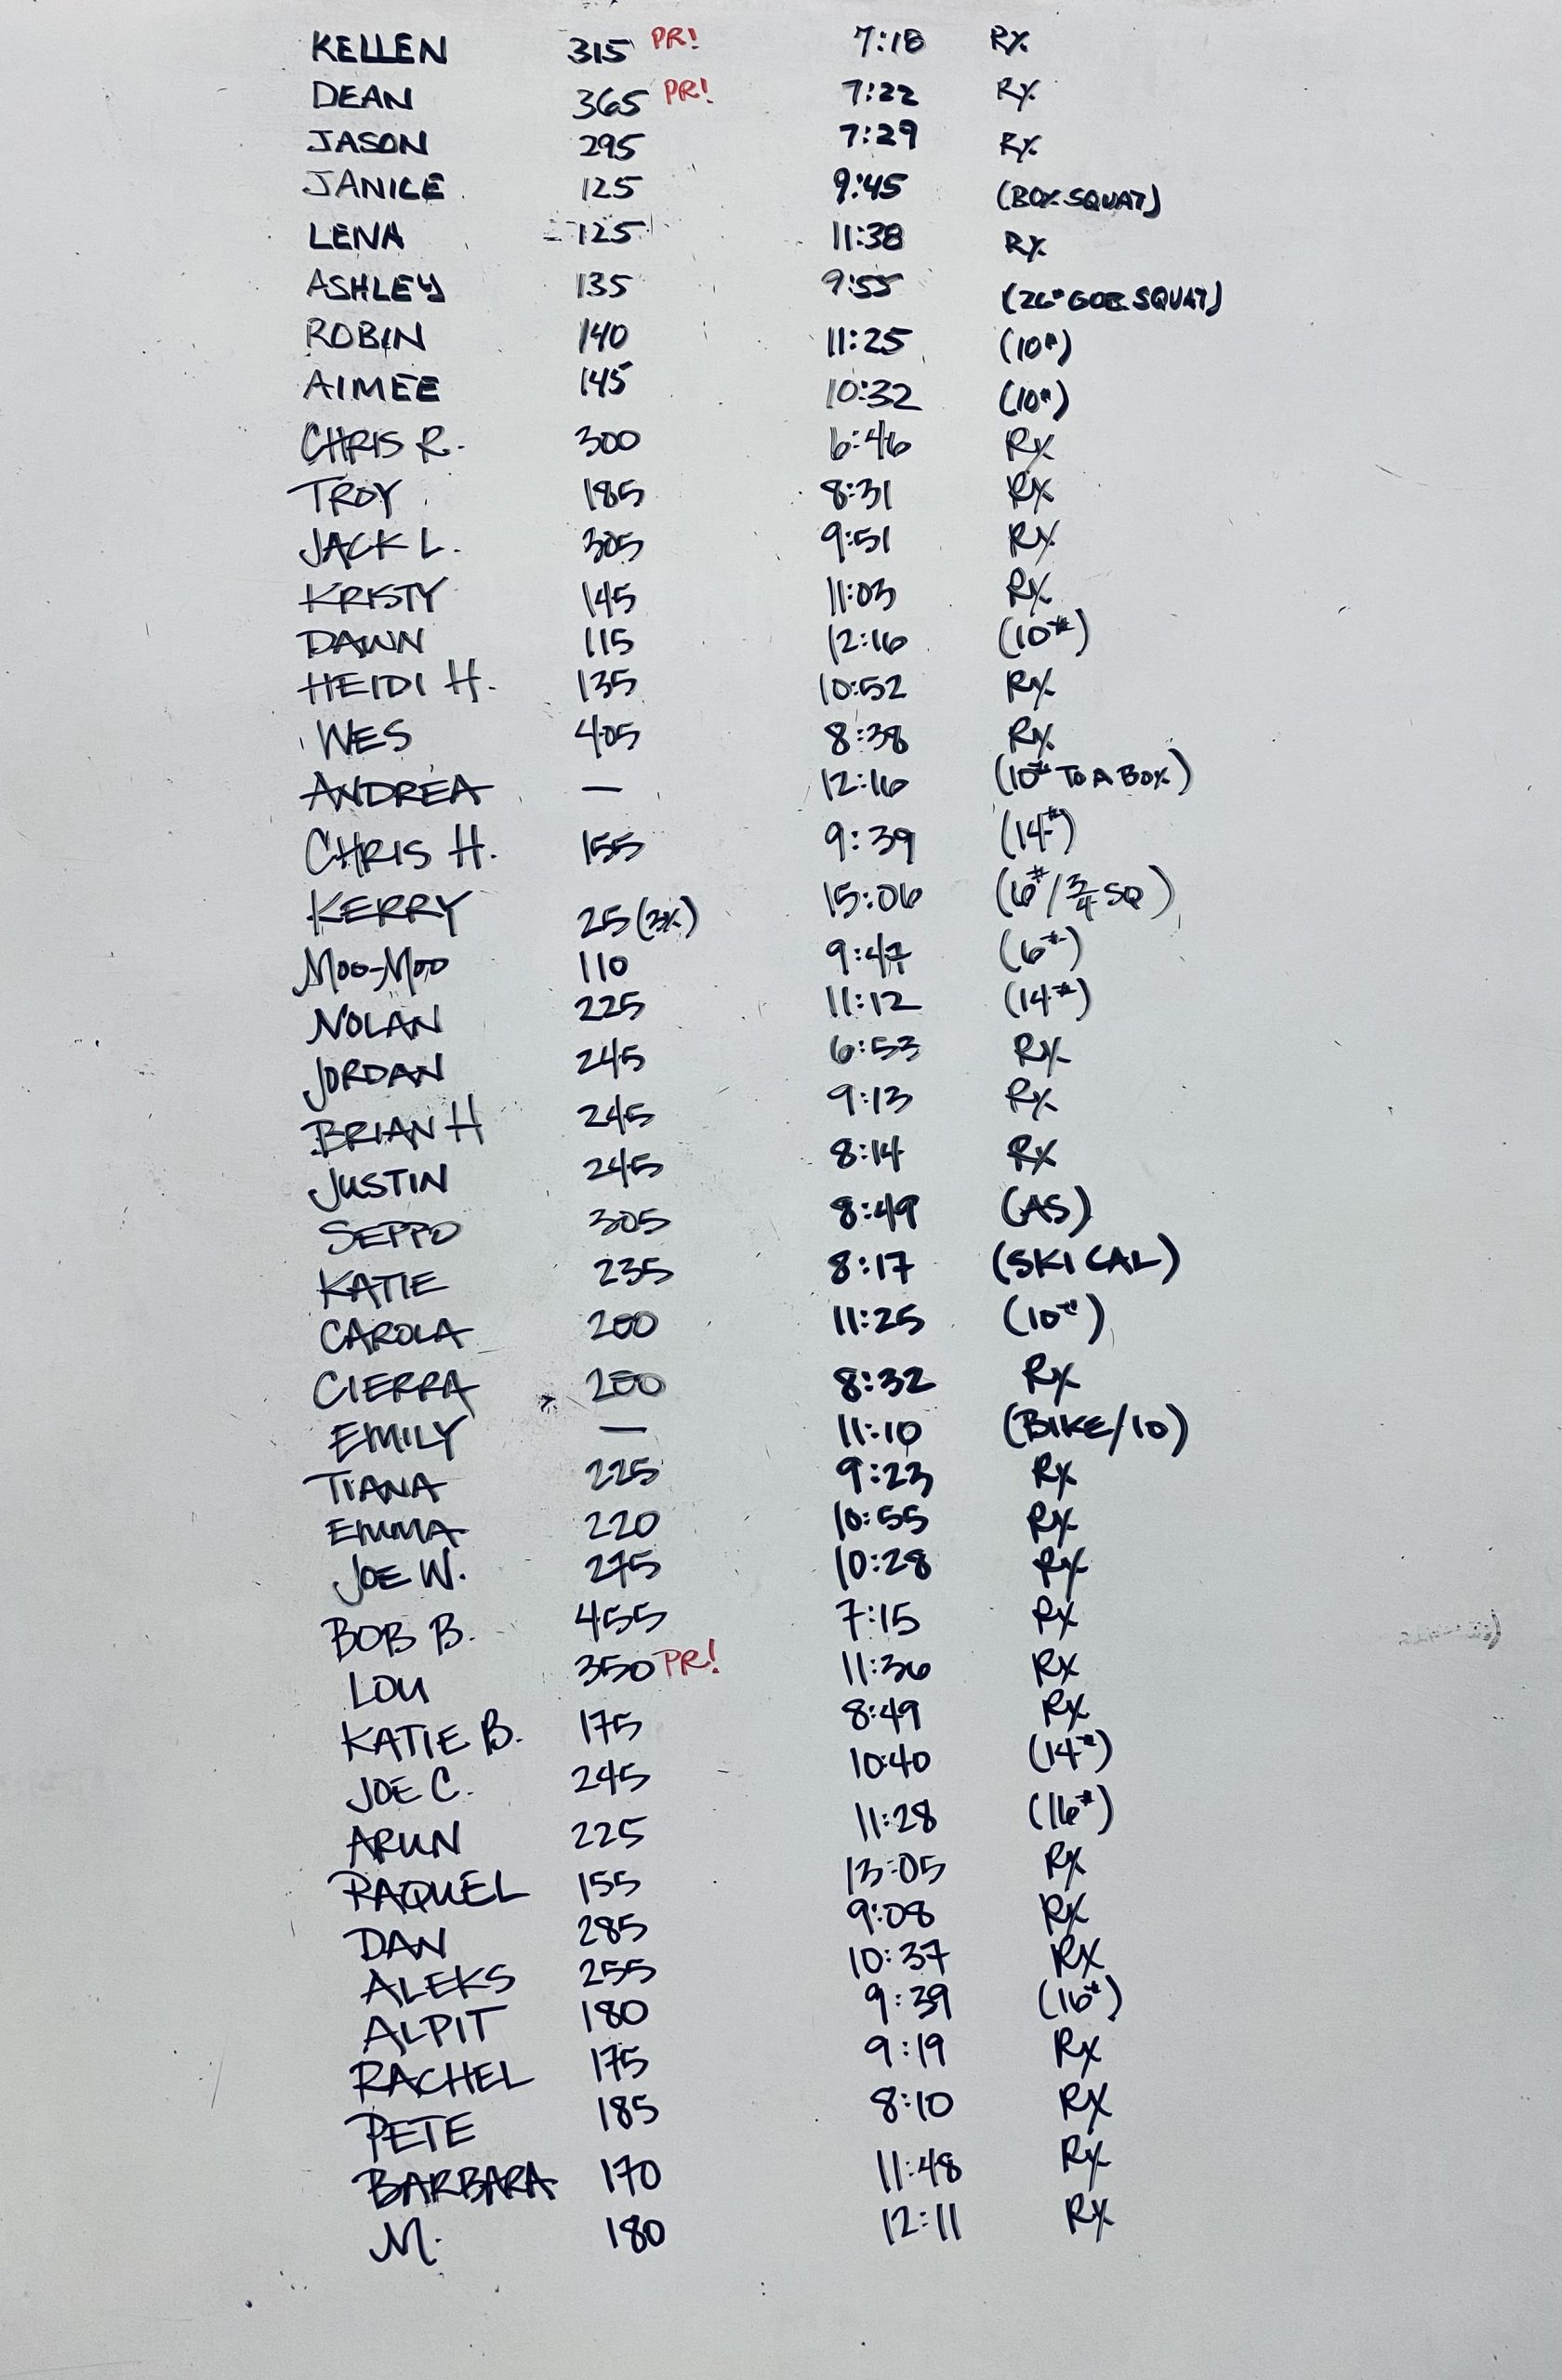 KELLEN 315 PR! 7:18 Rx
DEAN 365 PR! 7:22 Rx
JASON 295 7:29 Rx
JANICE 125 9:45 (BOX SQUAT)
LENA 125 11:38 Rx
ASHLEY 135 9:55 (26# GOB SQUAT)
ROBIN 140 11:25 (10#)
AIMEE 145 10:32 (10#)
CHRIS R. 300 6:46 Rx
TROY 185 8:31 Rx
JACK L. 305 9:51 Rx
KRISTY 145 11:03 Rx
DAWN 115 12:16 (10#)
HEIDI H. 135 10:52 Rx
WES 405 8:38 Rx
ANDREA — 12:16 (10# TO A BOX)
CHRIS H. 155 9:39 (14#)
KERRY 25 (3X) 15:06 (6#/3/4 SQ)
MOO-MOO 110 9:47 (6#)
NOLAN 225 11:12 (14#)
JORDAN 245 6:53 Rx
BRIAN H 245 9:13 Rx
JUSTIN 245 8:14 Rx
SEPPO 305 8:49 (AS)
KATIE 235 8:17 (SKI CAL)
CAROLA 200 11:25 (10#)
CIERRA 200 8:32 Rx
EMILY — 11:10 (BIKE/10)
TIANA 225 9:23 Rx
EMMA 220 10:55 Rx
JOE W. 275 10:28 Rx
BOB B. 455 7:15 Rx
LOU 350 PR! 11:36 Rx
KATIE B. 175 8:49 Rx
JOE C. 245 10:40 (14#)
ARUN 225 11:28 (16#)
RAQUEL 155 13:05 Rx
DAN 285 9:08 Rx
ALEKS 255 10:37 Rx
ALPIT 180 9:39 (16#)
RACHEL 175 9:19 Rx
PETE 185 8:10 Rx
BARBARA 170 11:48 Rx
M. 180 12:11 Rx